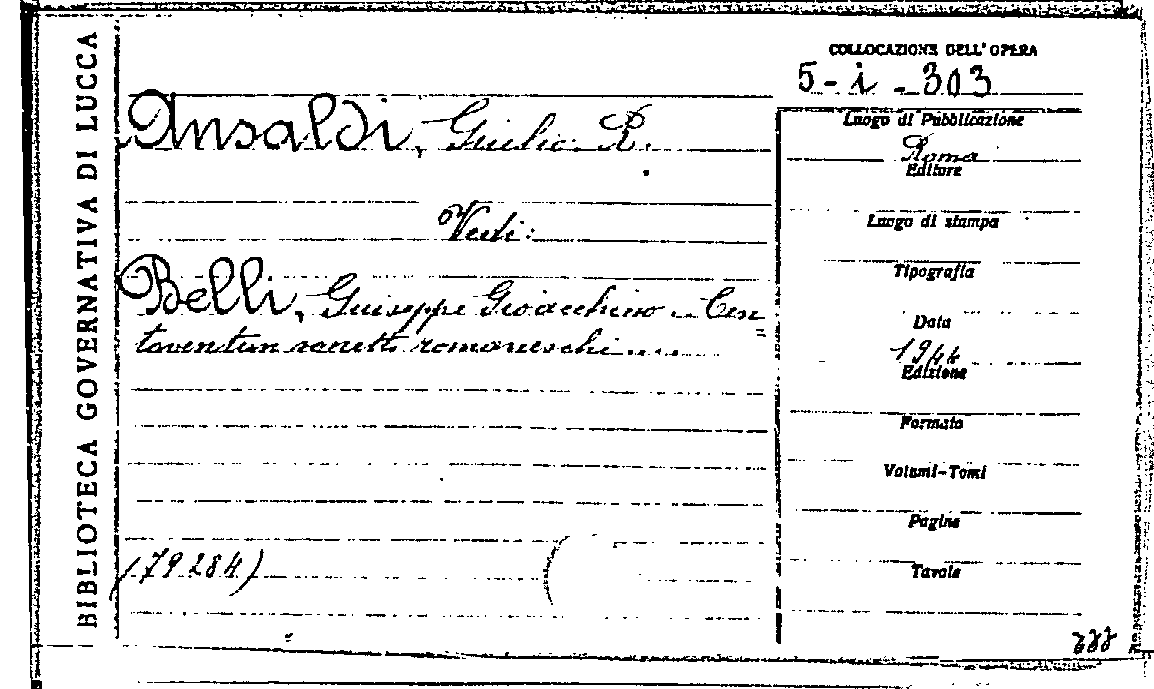 BIBLIOTECA GOVERNATIVA DI LUCCA
COLLOCAZIONE DELL'OPERA
5-i-303
Ansaldi, Giulio R.
Vedi:
Belli, Giuseppe Gioacchino - Cen=
toventun sonetti romaneschi....
(79284)
Luogo di Pubblicazione
Roma
Editore
Luogo di stampa
Tipografia
Data
1944
Edizione
Formato
Volumi-Tomi
Pagine
Tavole